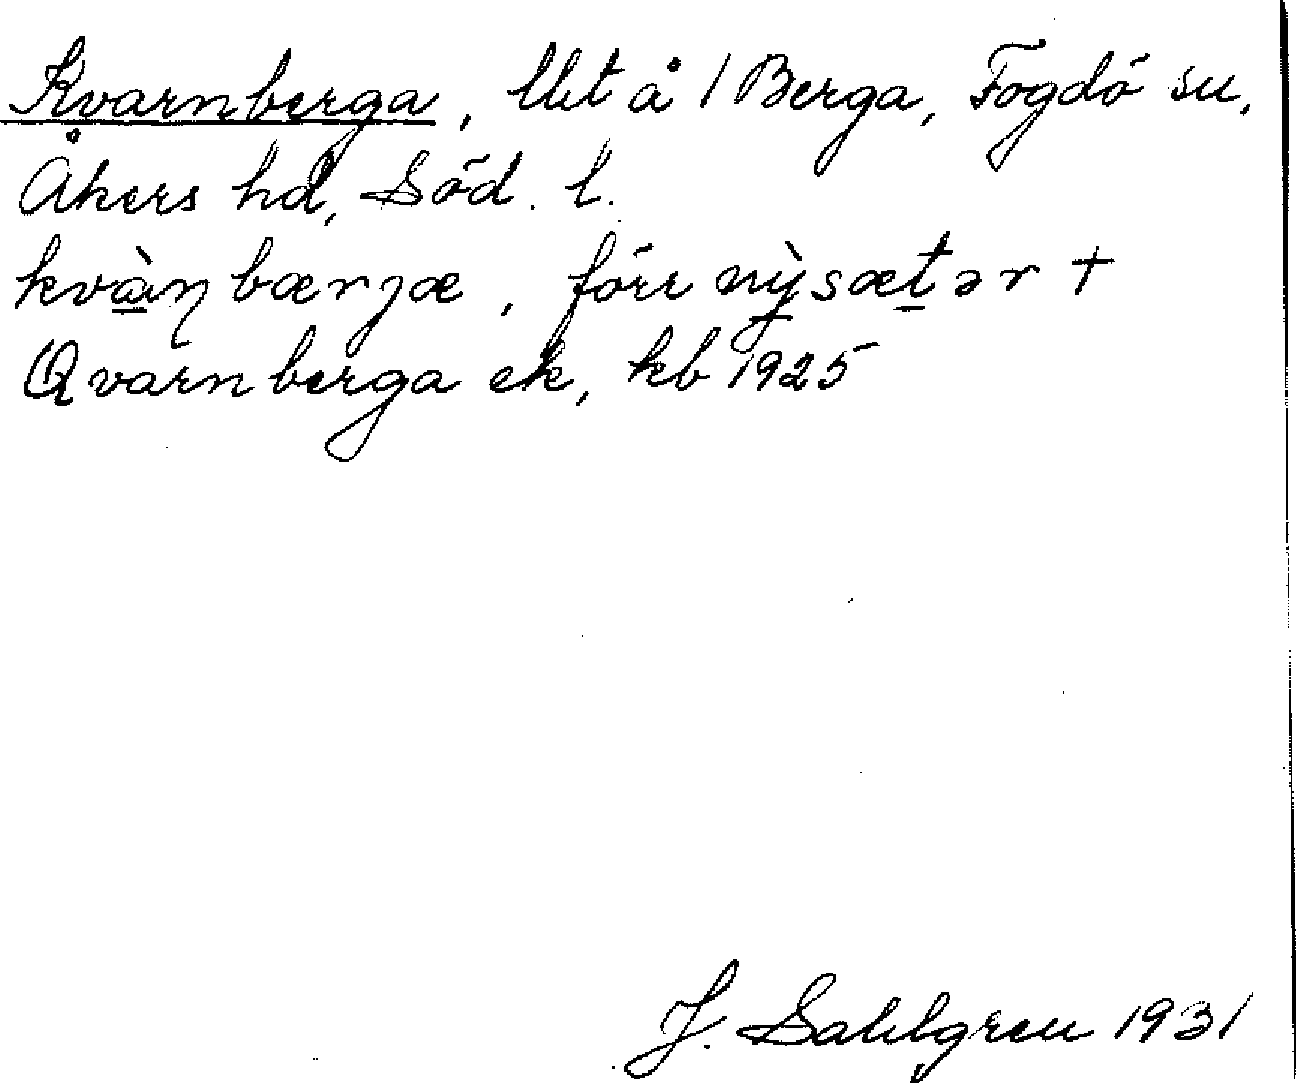 Kvarnberga, lht å 1 Berga, Fogdö sn,
Åkers hd, Söd. l.
kvàɳbærjæ, förr nỳsætər +
Qvarnberga ek, kb 1925
J. Sahlgren 1931